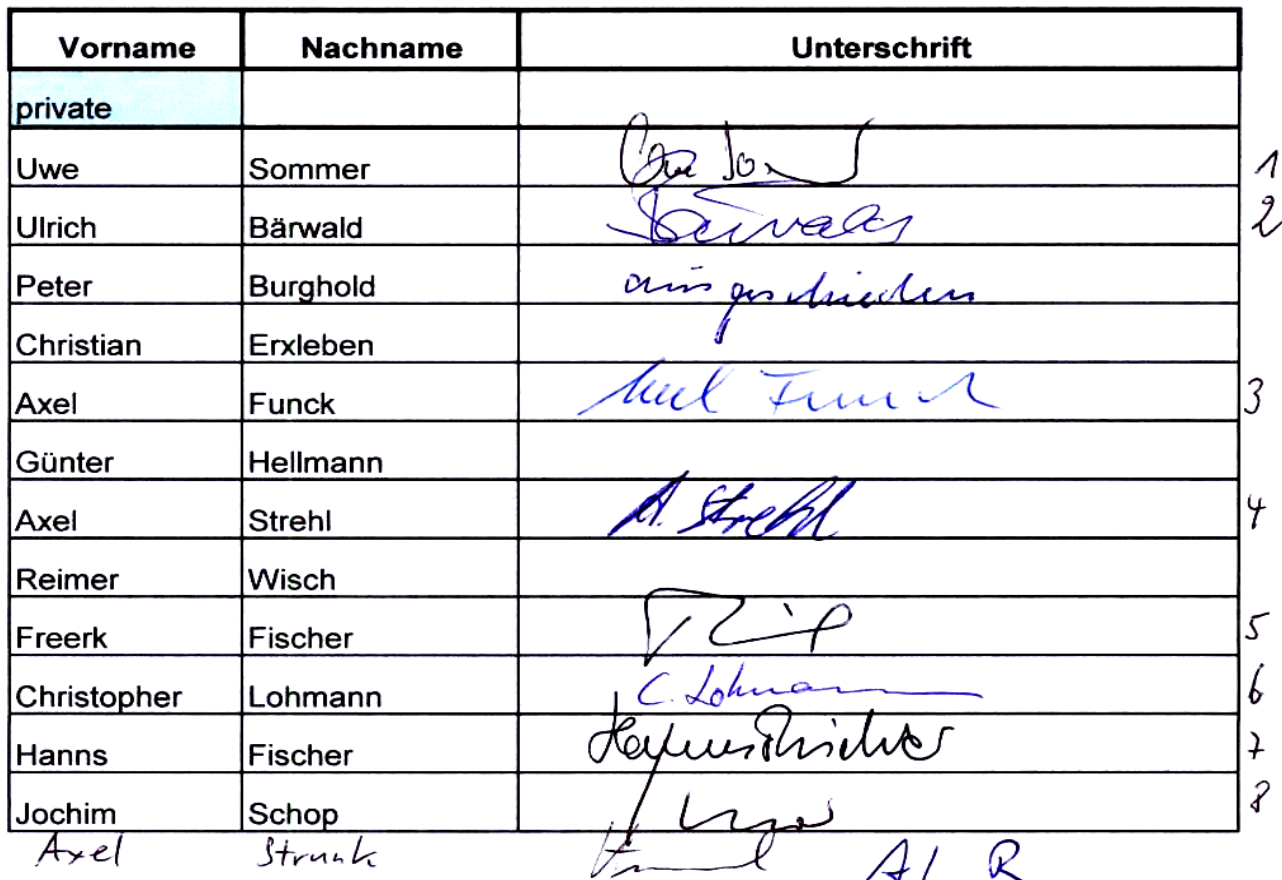 Vorname Nachname Unterschrift
private
Uwe Sommer 1
Ulrich Bärwald Bärwald 2
Peter Burghold ausgeschieden
Christian Erxleben
Axel Funck Axel Funck 3
Günter Hellmann
Axel Strehl A. Strehl 4
Reimer Wisch
Freerk Fischer 5
Christopher Lohmann C. Lohmann 6
Hanns Fischer 7
Jochim Schop 8
Axel Strunk